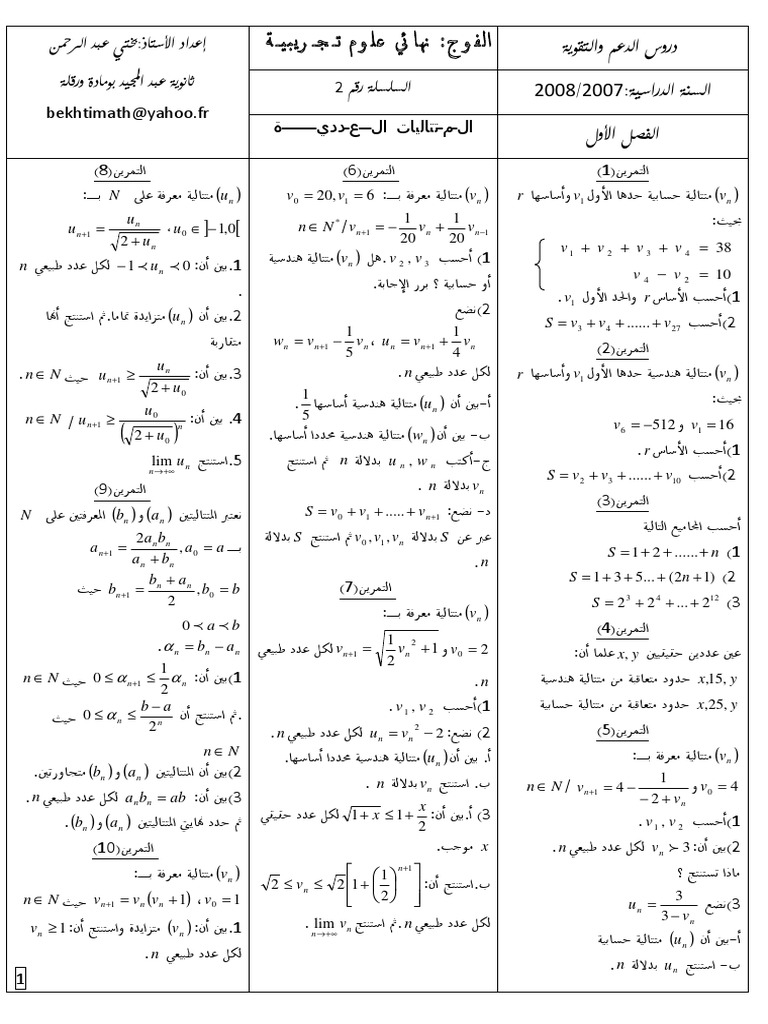 دروس الدعم والتقوية
السنة الدراسية:2008/2007
الفصل الأول
الفوج: نهائي علوم تجريبية
السلسلة رقم 2
المتتاليات العددية
إعداد الأستاذ:بختي عبد الرحمن
ثانوية عبد المجيد بومادة ورقلة
bekhtimath@yahoo.fr
التمرين(1)
(v_n) متتالية حسابية حدها الأول v_1 وأساسها r
بحيث:
v_1 + v_2 + v_3 + v_4 = 38
v_4 − v_2 = 10
1)أحسب الأساس r والحد الأول v_1.
2)أحسب S = v_3 + v_4 + ...... + v_27
التمرين(2)
(v_n) متتالية هندسية حدها الأول v_1 وأساسها r
بحيث:
v_1 = 16 و v_6 = −512
1)أحسب الأساس r.
2)أحسب S = v_2 + v_3 + ...... + v_10
التمرين(3)
أحسب المجاميع التالية
1) S = 1 + 2 + ...... + n
2) S = 1 + 3 + 5... + (2n + 1)
3) S = 2^3 + 2^4 + ... + 2^12
التمرين(4)
عين عددين حقيقيين x, y علما أن:
x,15, y حدود متعاقبة من متتالية هندسية
x,25, y حدود متعاقبة من متتالية حسابية
التمرين(5)
(v_n) متتالية معرفة بـ:
v_0 = 4 و n ∈ N / v_{n+1} = 4 − 1/(−2 + v_n)
1)أحسب v_1, v_2.
2)بين أن: v_n ≻ 3 لكل عدد طبيعي n.
ماذا تستنتج ؟
3)نضع u_n = 3/(3 − v_n)
أ-بين أن (u_n) متتالية حسابية
ب- استنتج u_n بدلالة n.
التمرين(6)
(v_n) متتالية معرفة بـ: v_0 = 20, v_1 = 6
n ∈ N* / v_{n+1} = −1/20 v_n + 1/20 v_{n−1}
1) أحسب v_2, v_3. هل (v_n) متتالية هندسية
أو حسابية ؟ برر الإجابة.
2)نضع
w_n = v_{n+1} − 1/5 v_n ، u_n = v_{n+1} + 1/4 v_n
لكل عدد طبيعي n.
أ-بين أن (u_n) متتالية هندسية أساسها 1/5.
ب- بين أن (w_n) متتالية هندسية محددا أساسها.
ج-أكتب u_n, w_n بدلالة n ثم استنتج
v_n بدلالة n.
د- نضع: S = v_0 + v_1 + ..... + v_{n+1}
عبر عن S بدلالة v_0, v_1, v_n ثم استنتج S بدلالة
n.
التمرين(7)
(v_n) متتالية معرفة بـ:
v_0 = 2 و v_{n+1} = √(1/2 v_n^2 + 1) لكل عدد طبيعي
n.
1)أحسب v_1, v_2.
2) نضع: u_n = v_n^2 − 2 لكل عدد طبيعي n.
أ. بين أن (u_n) متتالية هندسية محددا أساسها.
ب. استنتج v_n بدلالة n.
3) أ.بين أن: √(1 + x) ≤ 1 + x/2 لكل عدد حقيقي
x موجب.
ب.استنتج أن: √2 ≤ v_n ≤ √2[1 + (1/2)^{n+1}]
لكل عدد طبيعي n. ثم استنتج lim_{n→+∞} v_n.
التمرين(8)
(u_n) متتالية معرفة على N بـ:
u_0 ∈ ]−1,0[ ، u_{n+1} = u_n/√(2 + u_n)
1.بين أن: −1 ≺ u_n ≺ 0 لكل عدد طبيعي n
.
2.بين أن (u_n) متزايدة تماما. ثم استنتج أنها
متقاربة
3.بين أن: u_{n+1} ≥ u_n/√(2 + u_0) حيث n ∈ N.
4. بين أن: n ∈ N / u_{n+1} ≥ u_0/(√(2 + u_0))^n
5.استنتج lim_{n→+∞} u_n
التمرين(9)
نعتبر المتتاليتين (a_n) و (b_n) المعرفتين على N
بـ a_{n+1} = 2a_n b_n/(a_n + b_n), a_0 = a
b_{n+1} = (b_n + a_n)/2, b_0 = b حيث
0 ≺ a ≺ b
α_n = b_n − a_n.
1)بين أن: 0 ≤ α_{n+1} ≤ 1/2 α_n حيث n ∈ N
.ثم استنتج أن 0 ≤ α_n ≤ (b − a)/2^n حيث
n ∈ N
2)بين أن المتتاليتين (a_n) و (b_n) متجاورتين.
3)بين أن: a_n b_n = ab لكل عدد طبيعي n.
ثم حدد نهايتي المتتاليتين (a_n) و (b_n).
التمرين(10)
(v_n) متتالية معرفة بـ:
v_0 = 1 ، v_{n+1} = v_n(v_n + 1) حيث n ∈ N
1.بين أن: (v_n) متزايدة واستنتج أن: v_n ≥ 1
لكل عدد طبيعي n.
1